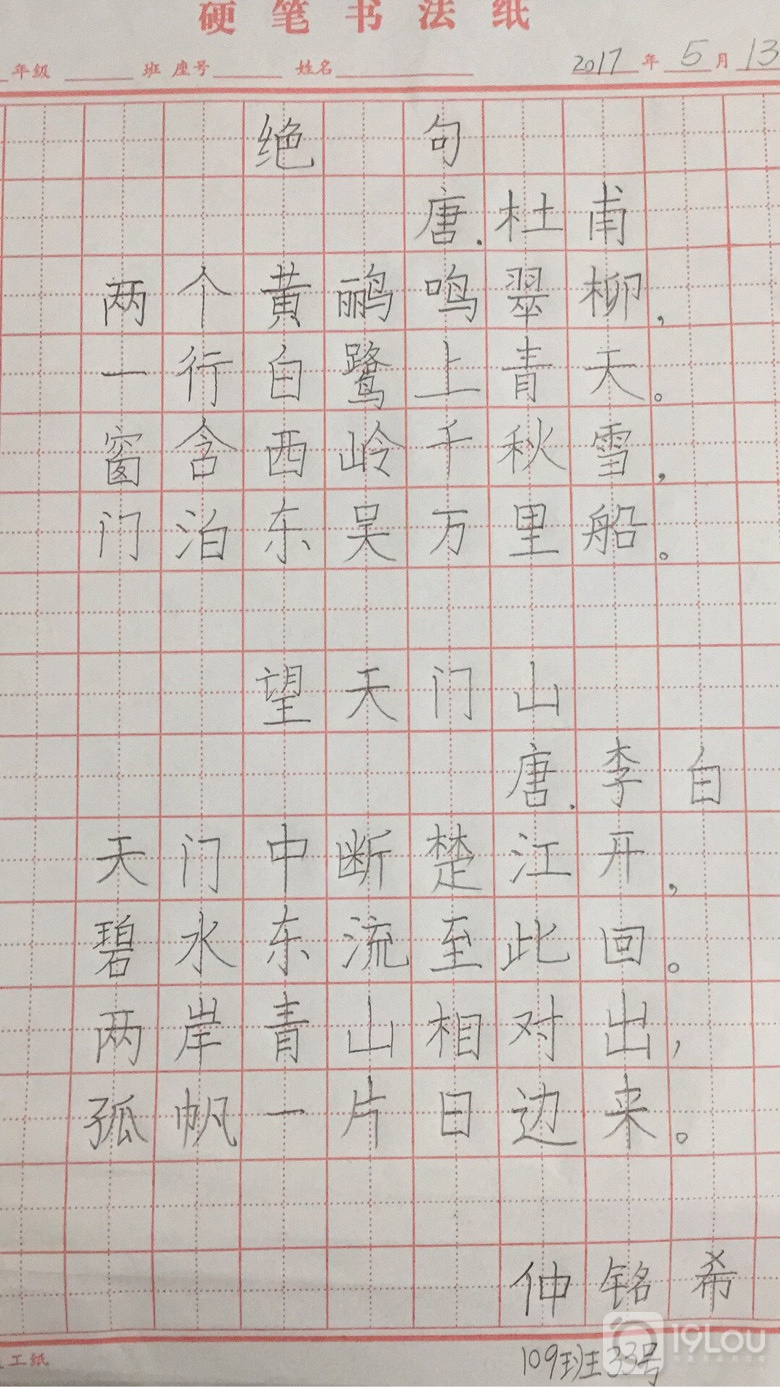 硬笔书法纸
年级 班 座号 姓名 2017年5月13
绝句
唐.杜甫
两个黄鹂鸣翠柳，
一行白鹭上青天。
窗含西岭千秋雪，
门泊东吴万里船。
望天门山
唐.李白
天门中断楚江开，
碧水东流至此回。
两岸青山相对出，
孤帆一片日边来。
仲铭希
工纸 109班33号
19Lou